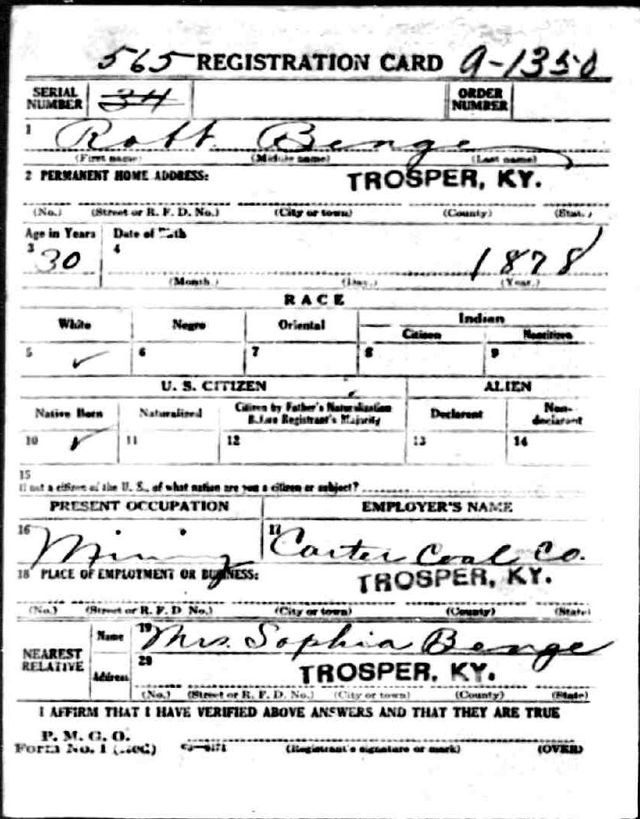 565 REGISTRATION CARD A-1350
SERIAL NUMBER 34 ORDER NUMBER
1 Robt Benge
(First name) (Middle name) (Last name)
2 PERMANENT HOME ADDRESS: TROSPER, KY.
(No.) (Street or R. F. D. No.) (City or town) (County) (State)
Age in Years Date of Birth
3 30 4 1878
(Month) (Day) (Year)
RACE
White Negro Oriental Indian
Citizen Noncitizen
5 ✓ 6 7 8 9
U. S. CITIZEN ALIEN
Native Born Naturalized Citizen by Father's Naturalization Before Registrant's Majority Declarant Non-declarant
10 ✓ 11 12 13 14
15
If not a citizen of the U. S., of what nation are you a citizen or subject?
PRESENT OCCUPATION EMPLOYER'S NAME
16 Mining 17 Carter Coal Co.
18 PLACE OF EMPLOYMENT OR BUSINESS: TROSPER, KY.
(No.) (Street or R. F. D. No.) (City or town) (County) (State)
NEAREST RELATIVE Name 19 Mrs. Sophia Benge
Address 20 TROSPER, KY.
(No.) (Street or R. F. D. No.) (City or town) (County) (State)
I AFFIRM THAT I HAVE VERIFIED ABOVE ANSWERS AND THAT THEY ARE TRUE
P. M. G. O.
Form No. 1 (Red) (Registrant's signature or mark) (OVER)